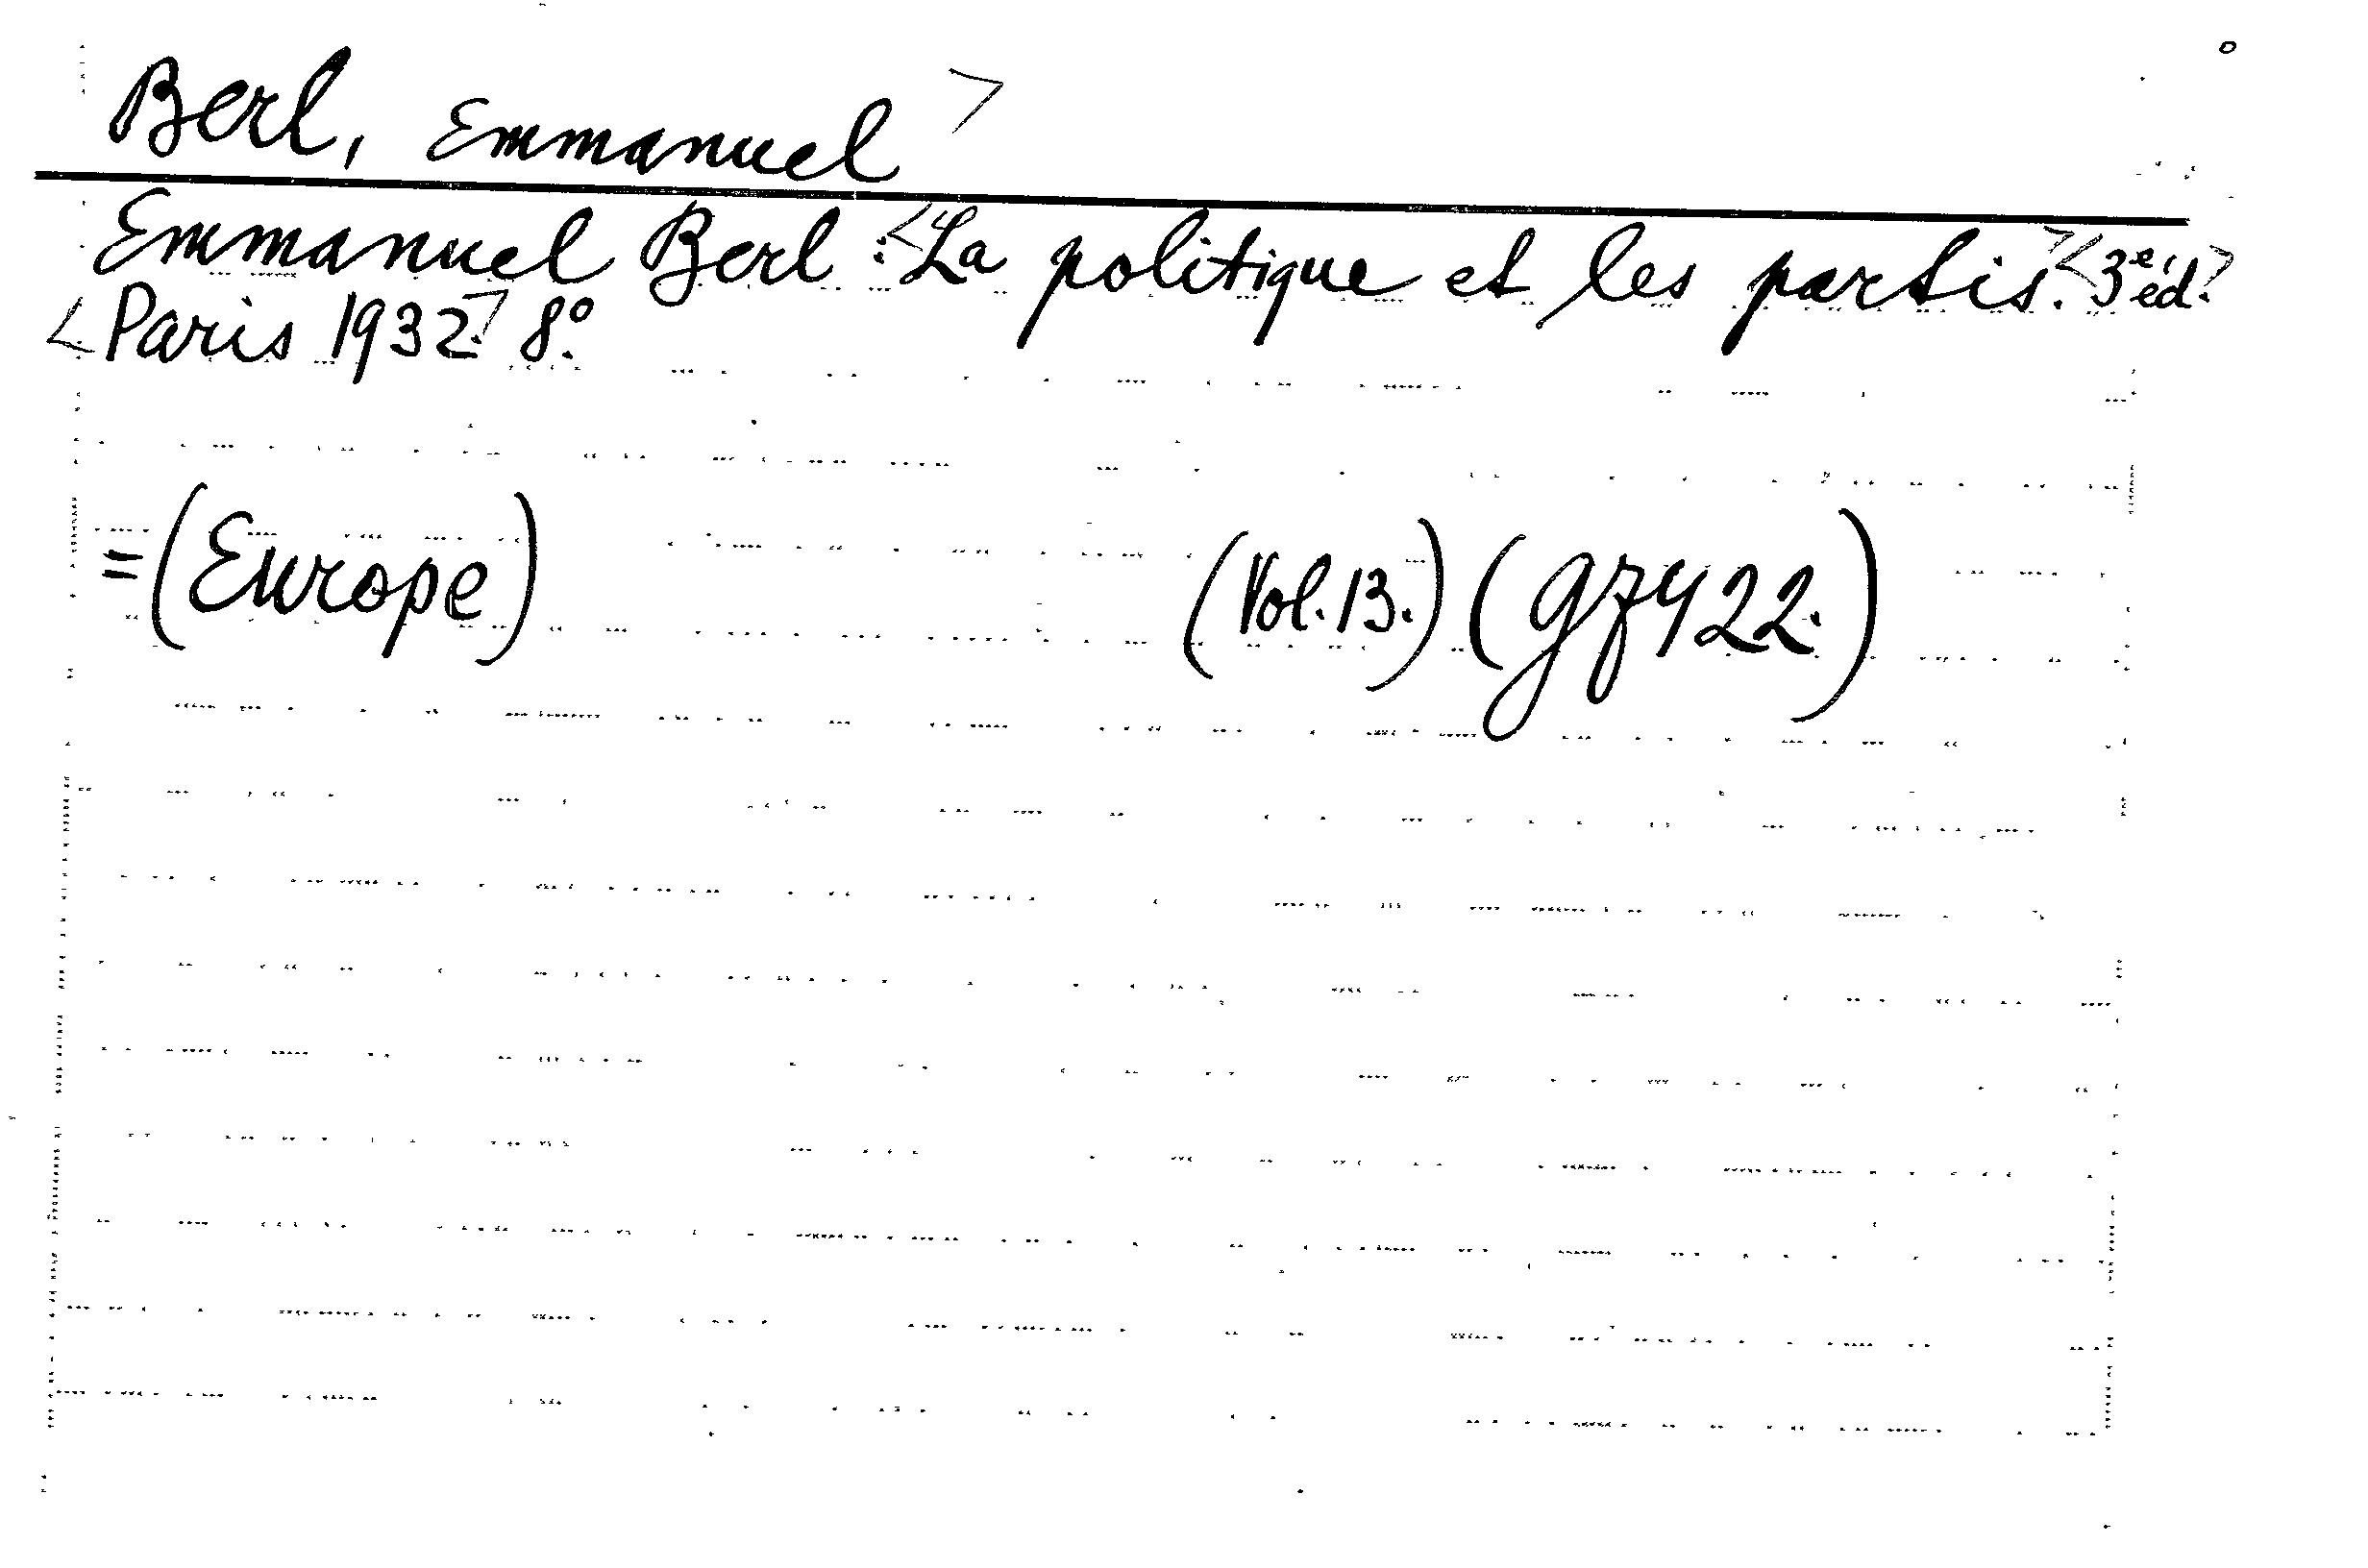 Berl, Emmanuel>
Emmanuel Berl: <La politique et les partis.> <3e éd.>
<Paris 1932.> 8°.
=(Europe) (Vol. 13.) (gf 422.)